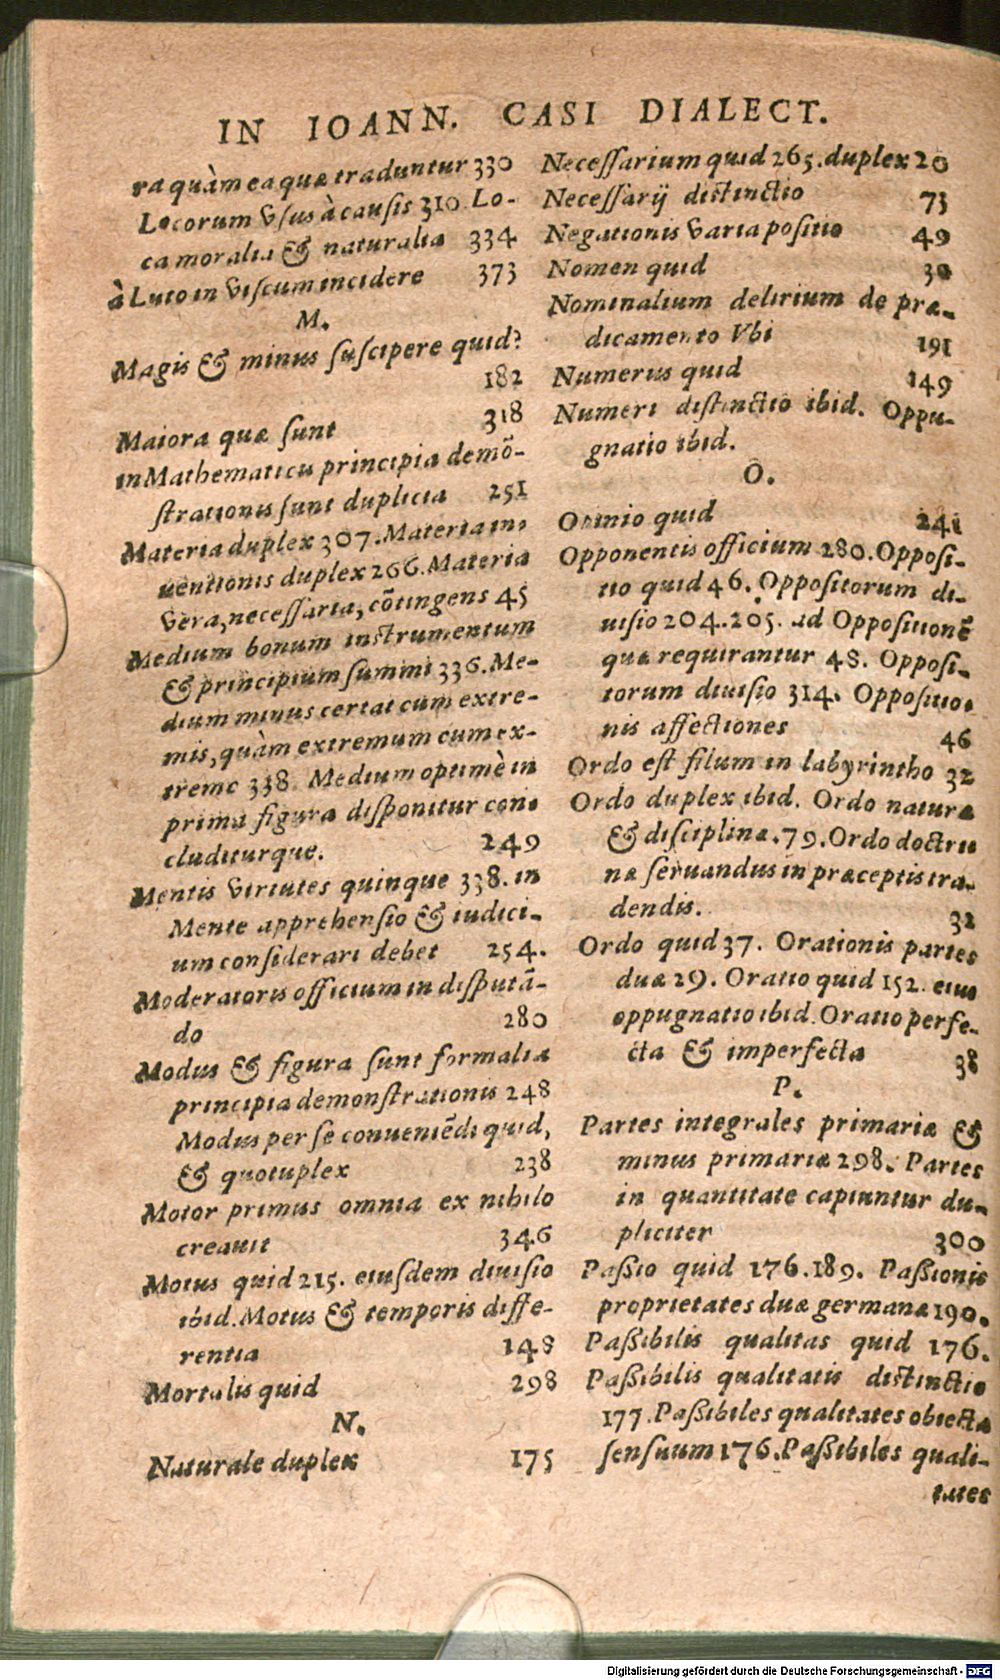 IN IOANN. CASI DIALECT.
ra quàm ea quæ traduntur 330
Locorum vsus à causis 310. Lo-
ca moralia & naturalia 334
à Luto in viscum incidere 373
M.
Magis & minus suscipere quid?
182
Maiora quæ sunt 318
in Mathematicis principia demõ-
strationis sunt duplicia 251
Materia duplex 307. Materia in-
uentionis duplex 266. Materia
vera, necessaria, cõtingens 45
Medium bonum instrumentum
& principium summi 336. Me-
dium minus certat cum extre-
mis, quàm extremum cum ex-
tremo 338. Medium optimè in
prima figura disponitur con-
cluditurque. 249
Mentis virtutes quinque 338. in
Mente apprehensio & iudici-
um considerari debet 254.
Moderatoris officium in disputã-
do 280
Modus & figura sunt formalia
principia demonstrationis 248
Modus per se conueniẽdi quid,
& quotuplex 238
Motor primus omnia ex nihilo
creauit 346
Motus quid 215. eiusdem diuisio
ibid. Motus & temporis diffe-
rentia 148
Mortalis quid 298
N.
Naturale duplex 175
Necessarium quid 265. duplex 20
Necessarij distinctio 73
Negationis varia positio 49
Nomen quid 30
Nominalium delirium de præ-
dicamento Vbi 191
Numerus quid 149
Numeri distinctio ibid. Oppu-
gnatio ibid.
O.
Opinio quid 241
Opponentis officium 280. Opposi-
tio quid 46. Oppositorum di-
uisio 204. 205. ad Oppositionẽ
quæ requirantur 48. Opposi-
torum diuisio 314. Oppositio-
nis affectiones 46
Ordo est filum in labyrintho 32
Ordo duplex ibid. Ordo naturæ
& disciplinæ. 79. Ordo doctri
næ seruandus in præceptis tra-
dendis. 32
Ordo quid 37. Orationis partes
duæ 29. Oratio quid 152. eius
oppugnatio ibid. Oratio perfe-
cta & imperfecta 38
P.
Partes integrales primariæ &
minus primariæ 298. Partes
in quantitate capiuntur du-
pliciter 300
Paßio quid 176. 189. Paßionis
proprietates duæ germanæ 190.
Paßibilis qualitas quid 176.
Paßibilis qualitatis distinctio
177. Paßibiles qualitates obiecta
sensuum 176. Paßibiles quali-
tates
Digitalisierung gefördert durch die Deutsche Forschungsgemeinschaft - DFG